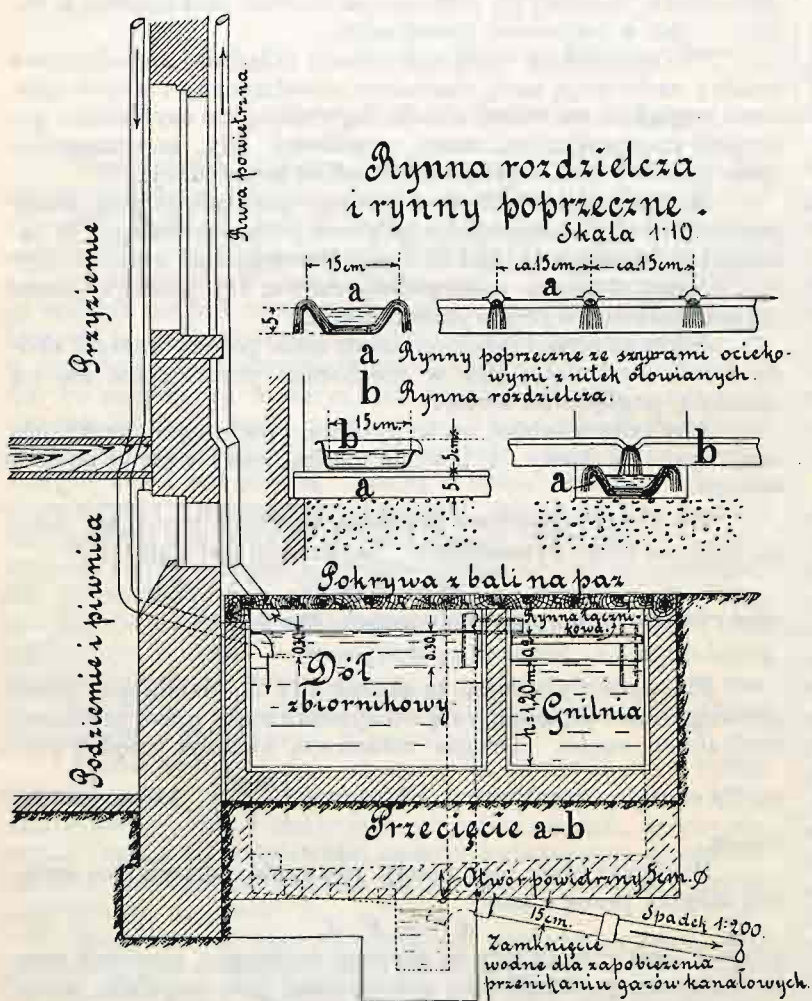 Rura powietrzna.
Przyziemie
Rynna rozdzielcza
i rynny poprzeczne.
Skala 1:10.
15cm
ca.15cm
ca.15cm
a
a
5
a Rynny poprzeczne ze sznurami ocieko-
wymi z nitek ołowianych.
b Rynna rozdzielcza.
15cm.
b
a
5cm.
5
b
a
Podziemie i piwnica
Pokrywa z bali na paz
Rynna łączni-
kowa.
0.30.
0.30.
0.2
h=1,20m.
Dół
zbiornikowy
Gnilnia
Przecięcie a-b
Otwór powietrzny 5cm.Ø
15cm.
Spadek 1:200.
Zamknięcie
wodne dla zapobieżenia
przenikaniu gazów kanałowych